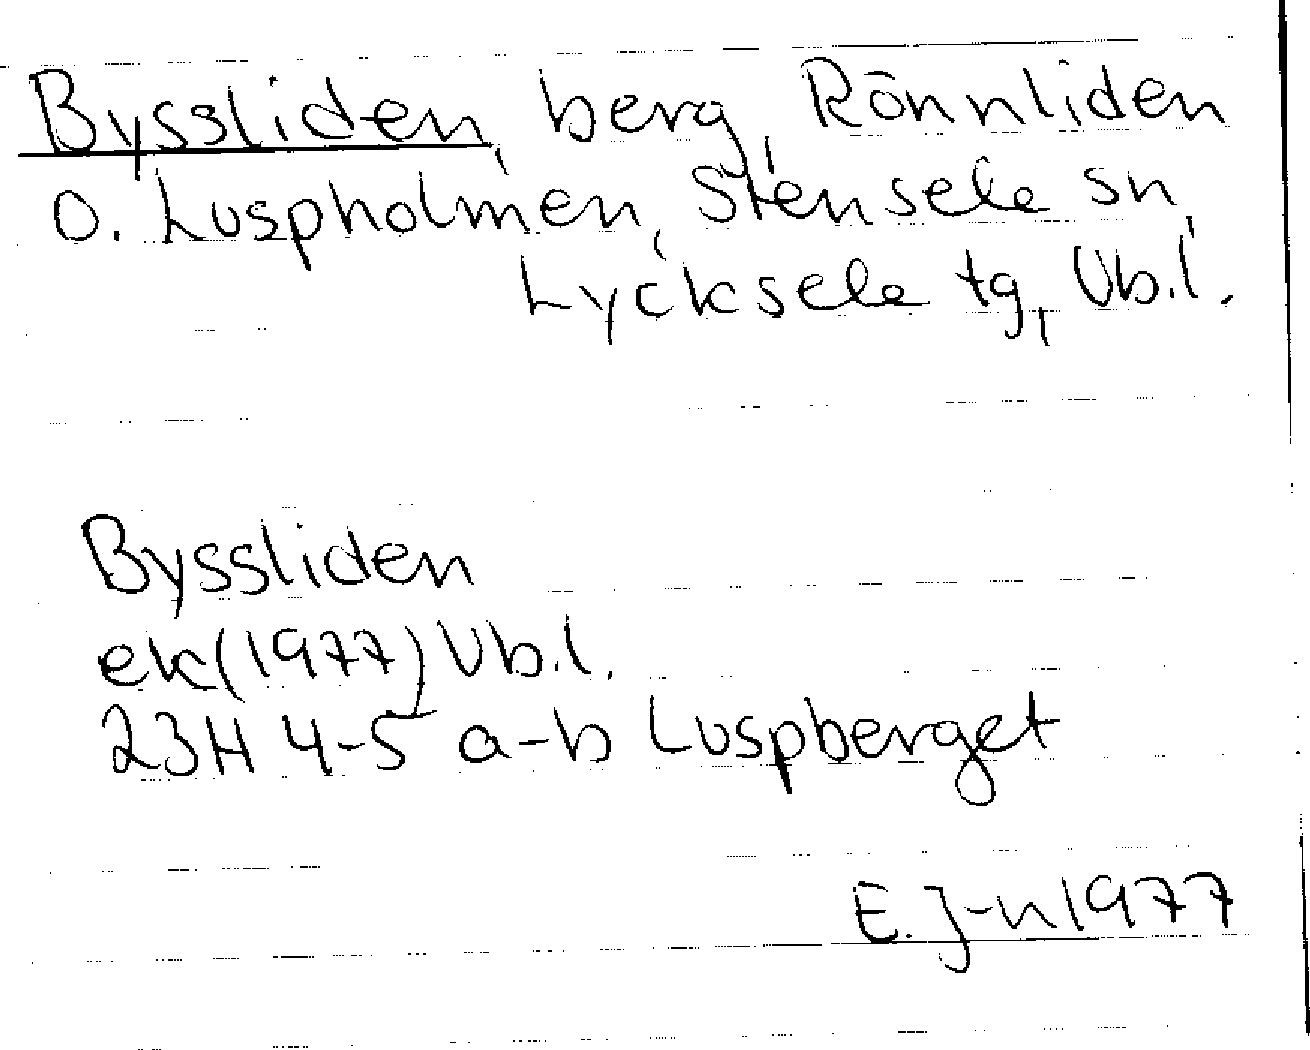 Byssliden, berg, Rönnliden
o. Luspholmen, Stensele sn,
Lycksele tg, Vb.l.
Byssliden
ek(1977) Vb.l.
23H 4-5 a-b Luspberget
E. J-n 1977